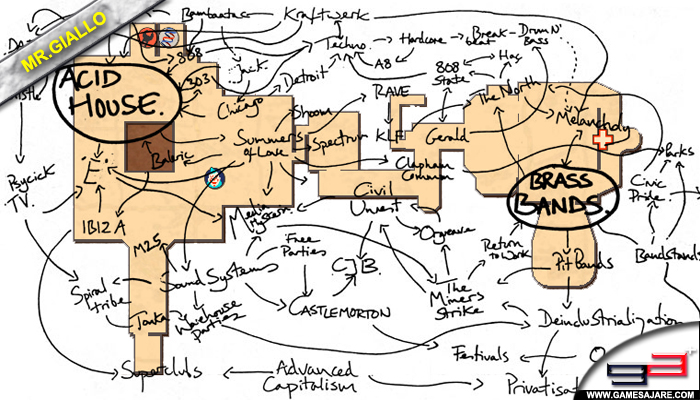 MR.GIALLO
Bambaataa
Kraftwerk
808
303
Jack
Techno
Hardcore
Break-beat
Drum N' Bass
A8
808 State
Hac
ACID HOUSE.
Chicago
Detroit
Shoom
RAVE
The North
Melancholy
Summers of Love
Spectrum
KLF
Gerald
Baleric
Clapham Common
Parks
Psycick TV.
"E"
Civil Unrest
BRASS BANDS.
Civic Pride
IBIZA
Media Hysteria
Orgreave
M25
Free Parties
Return to Work
Pit Bands
Bandstands
Spiral tribe
Sound Systems
CJB.
The Miners Strike
Tonka
Warehouse Parties
CASTLEMORTON
Deindustrialization
Festivals
Superclubs
Advanced Capitalism
Privatisat
WWW.GAMESAJARE.COM